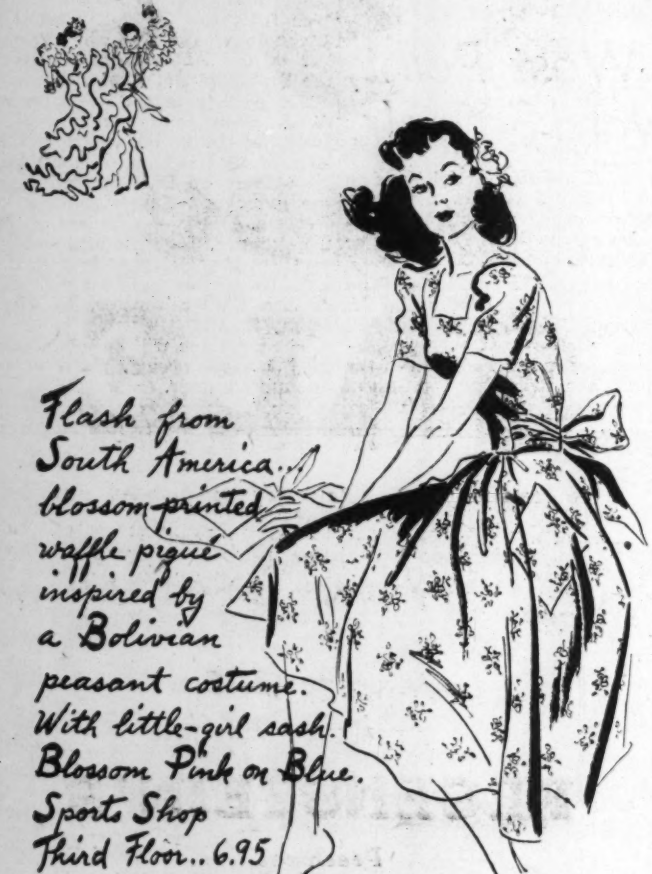 Flash from
South America...
blossom-printed
waffle piqué
inspired by
a Bolivian
peasant costume.
With little-girl sash.
Blossom Pink on Blue.
Sports Shop
Third Floor.. 6.95